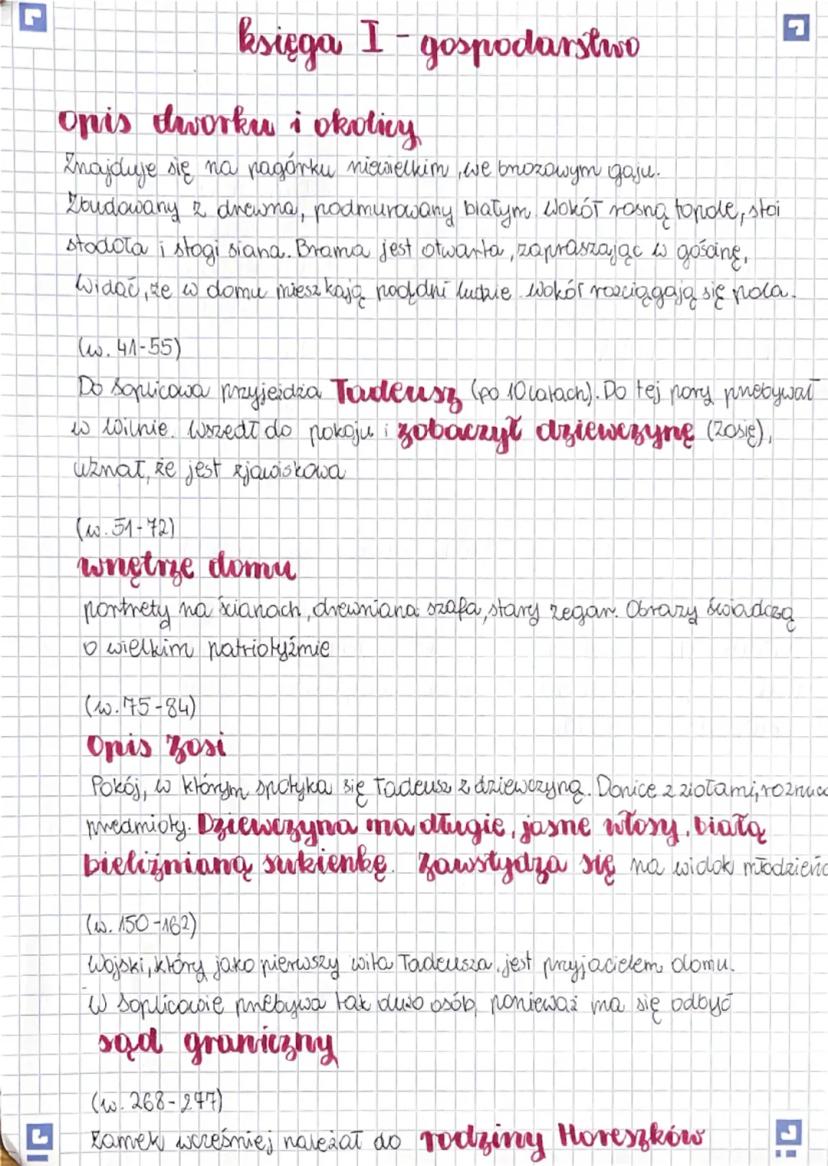 księga I - gospodarstwo
opis dworku i okolicy
Znajduje się na pagórku niewielkim, we brzozowym gaju.
Zbudowany z drewna, podmurowany białym. Wokół rosną topole, stoi
stodoła i stogi siana. Brama jest otwarta, zapraszając w gościnę,
widać, że w domu mieszkają porządni ludzie. Wokół rozciągają się pola.
(w. 41-55)
Do Soplicowa przyjeżdża Tadeusz (po 10 latach). Do tej pory przebywał
w Wilnie. Wszedł do pokoju i zobaczył dziewczynę (Zosię),
uznał, że jest zjawiskowa
(w. 51-72)
wnętrze domu
portrety na ścianach, drewniana szafa, stary zegar. Obrazy świadczą
o wielkim patriotyźmie
(w. 75-84)
Opis Zosi
Pokój, w którym spotyka się Tadeusz z dziewczyną. Donice z ziołami,
przedmioty. Dziewczyna ma długie, jasne włosy, białą
bieliźnianą sukienkę. Zawstydza się na widok
(w. 150-162)
Wojski, który jako pierwszy wita Tadeusza, jest przyjacielem domu.
W Soplicowie przebywa tak dużo osób, ponieważ ma się odbyć
sąd graniczny
(w. 268-277)
Zamek wcześniej należał do rodziny Horeszków